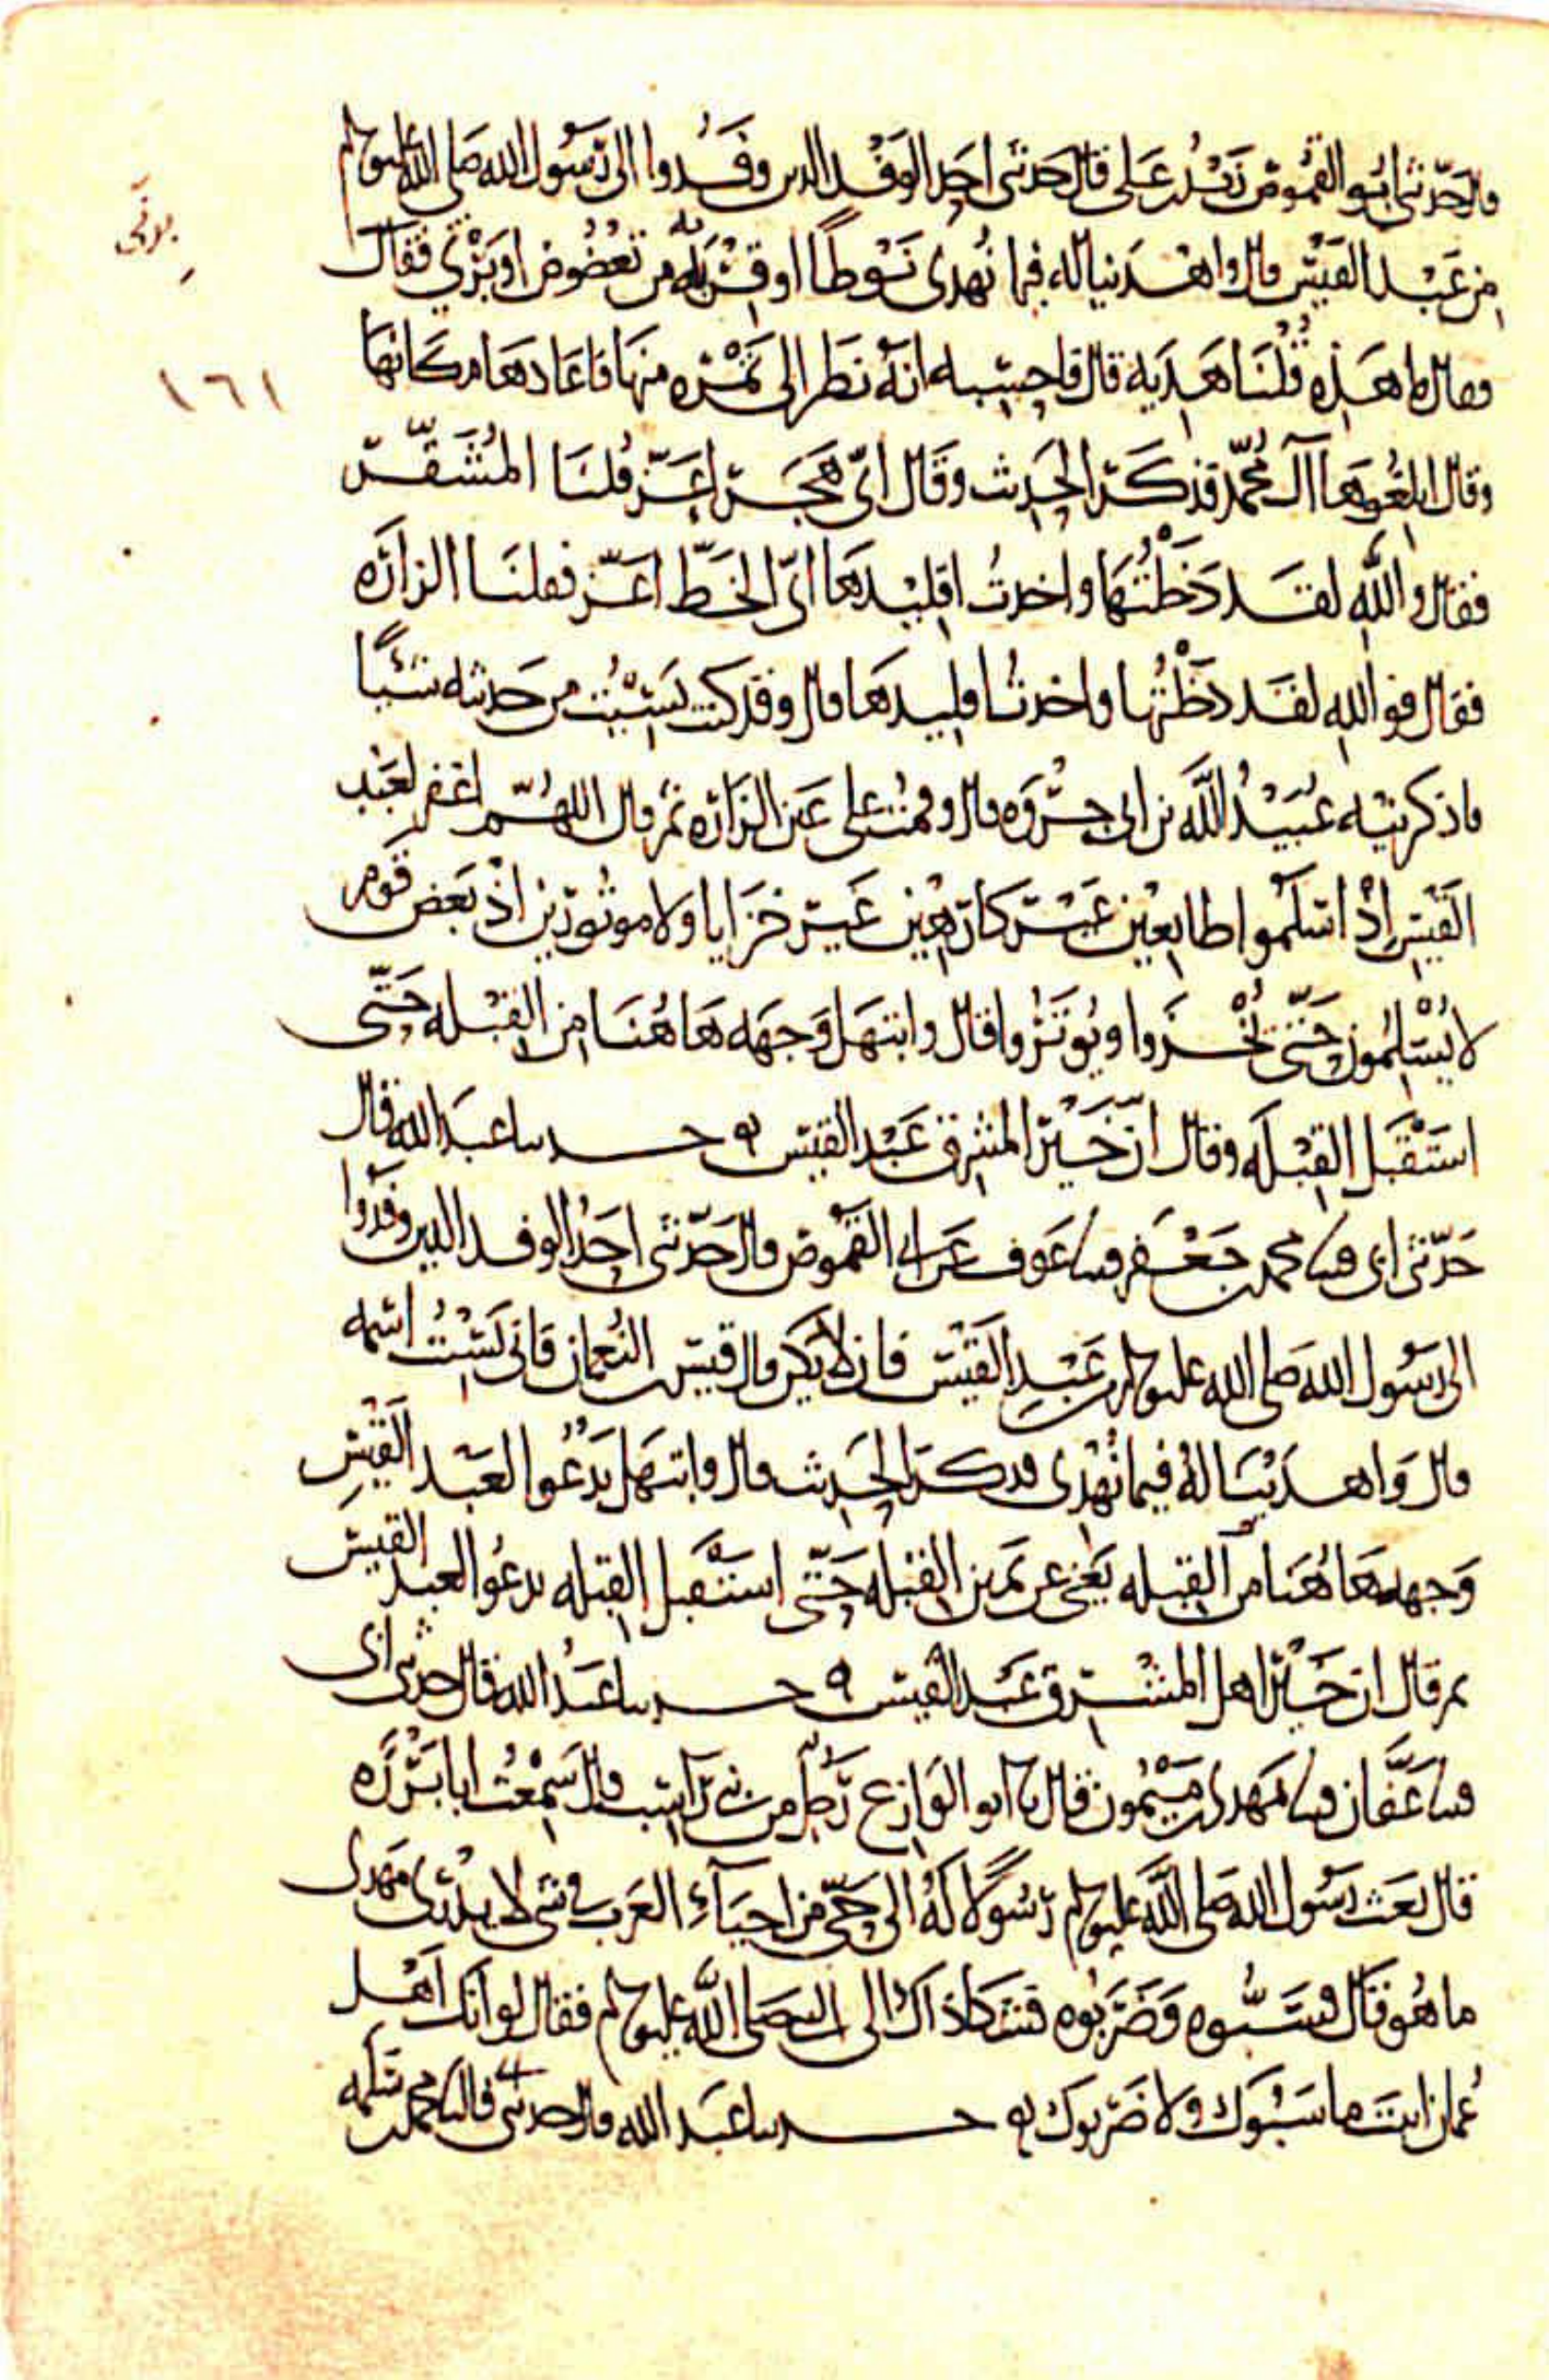 قال حدثني ابو القموص زيد بن على قال حدثني احد الوفد الذين وفدوا الى رسول الله صلى الله عليه وسلم
من عبد القيس قال واهدينا له فيما نهدى نوطا او قربة من تعضوض او برني فقال
فقال ما هذه قلنا هدية قال فاحسبه انه نظر الى تمرة منها فاعادها مكانها
وقال ابلغوها آل محمد فذكر الحديث وقال اى هجر اعز قلنا المشقر
فقال والله لقد دخلتها واخذت اقليدها اى الخط اعز فقلنا الزارة
فقال فوالله لقد دخلتها واخذت اقليدها قال وقد كنت نسيت من حديثه شيئا
فاذكرنيه عبيد الله بن ابى جروة قال وقمت على عين الزارة ثم قال اللهم اغفر لعبد
القيس اذ اسلموا طايعين غير كارهين غير خزايا ولا موتورين اذ بعض قوم
لا يسلمون حتى يخزوا ويوتروا قال وابتهل وجهه هاهنا من القبلة حتى
استقبل القبلة وقال ان خير المشرق عبد القيس ه حدثنا عبد الله قال
حدثني ابى قثنا محمد بن جعفر قثنا عوف عن ابى القموص قال حدثني احد الوفد الذين وفدوا
الى رسول الله صلى الله عليه وسلم من عبد القيس فان لا يكن قال قيس بن النعمان فانى نسيت اسمه
قال واهدينا له فيما نهدى فذكر الحديث قال وابتهل يدعوا لعبد القيس
وجهه هاهنا من القبلة يعنى عن يمين القبلة حتى استقبل القبلة يدعوا لعبد القيس
ثم قال ان خير اهل المشرق عبد القيس ه حدثنا عبد الله قال حدثني ابى
قثنا عفان قثنا مهدى بن ميمون قال نا ابو الوازع رجل من بنى راسب قال سمعت ابا برزة
قال بعث رسول الله صلى الله عليه وسلم رسولا له الى حى من احياء العرب فى شى لا يدرى مهدى
ما هو قال فسبوه وضربوه فشكا ذاك الى النبى صلى الله عليه وسلم فقال لو انك اهل
عمان اتيت ما سبوك ولا ضربوك ه حدثنا عبد الله قال حدثني ابى قال نا محمد بن سلمه
١٦١